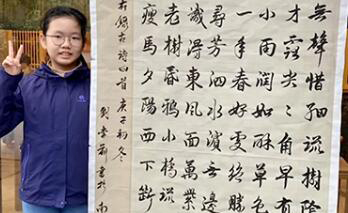 無聲惜細流樹陰
才露尖尖角早有
小雨潤如酥草色
一年春好處絕勝
尋芳泗水濱無邊
識得東風面萬紫
老樹昏鴉小橋流
瘦馬夕陽西下斷
右錄古詩四首庚子初冬
書於南